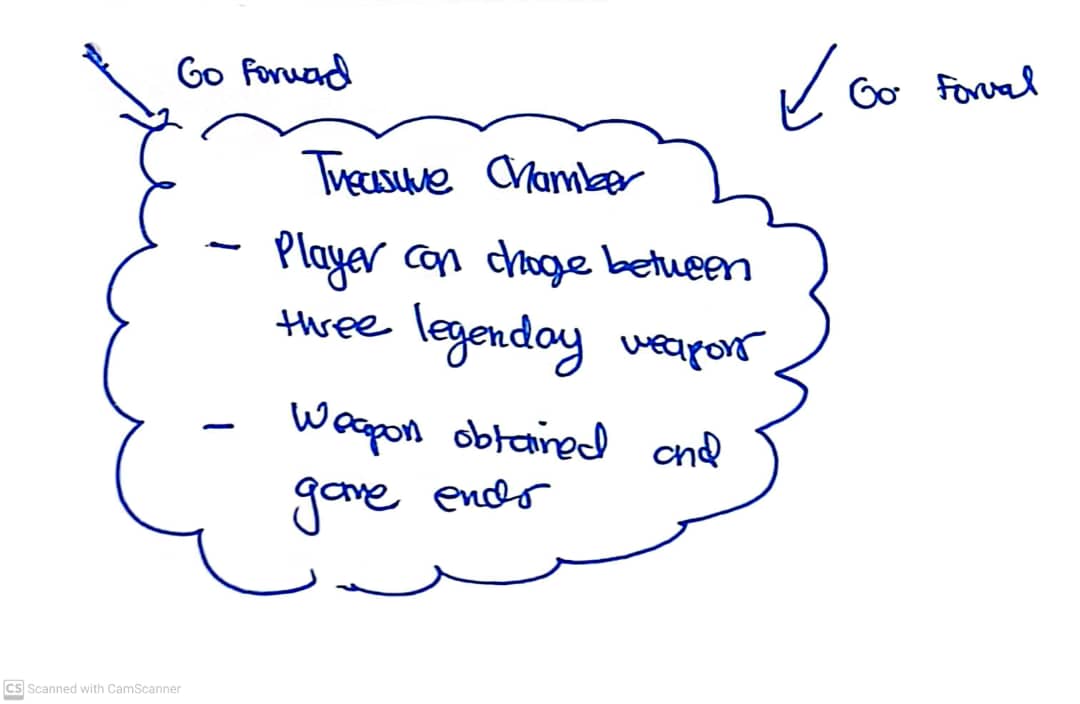 Go Forward
Go Forwal
Treasure Chamber
- Player can choge between
three legenday weapons
- Weapon obtained and
game ends
CS Scanned with CamScanner